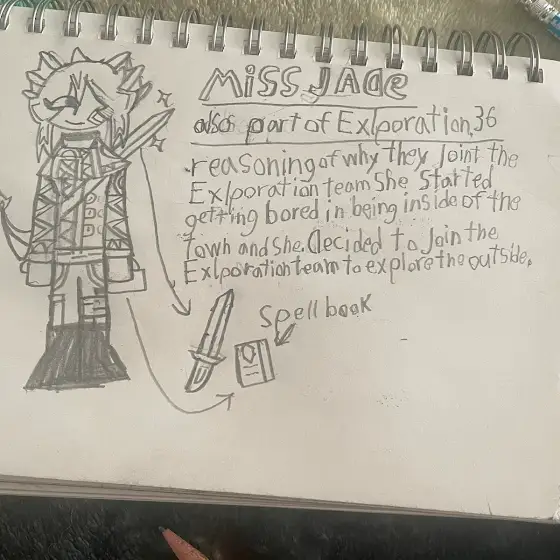 MISS JADE
also part of Exlporation, 36
reasoning of why they Joint the
Exlporation team She Started
getting bored in being inside of the
Town and she. decided to Join the
Exlporation team to explore the outside.
Spell book